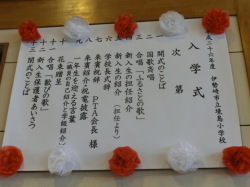 平成二十六年度　伊勢崎市立境島小学校
入学式
次第
一　開式のことば
二　国歌斉唱
三　合唱「ふるさとの歌」
四　新入生の担任紹介
五　新入生の紹介（担任より）
六　学校長式辞
七　来賓祝辞　PTA会長　様
八　来賓紹介・祝電披露
九　一年生を迎える言葉
花束贈呈
合唱「歓びの歌」
新入生保護者あいさつ
閉式のことば